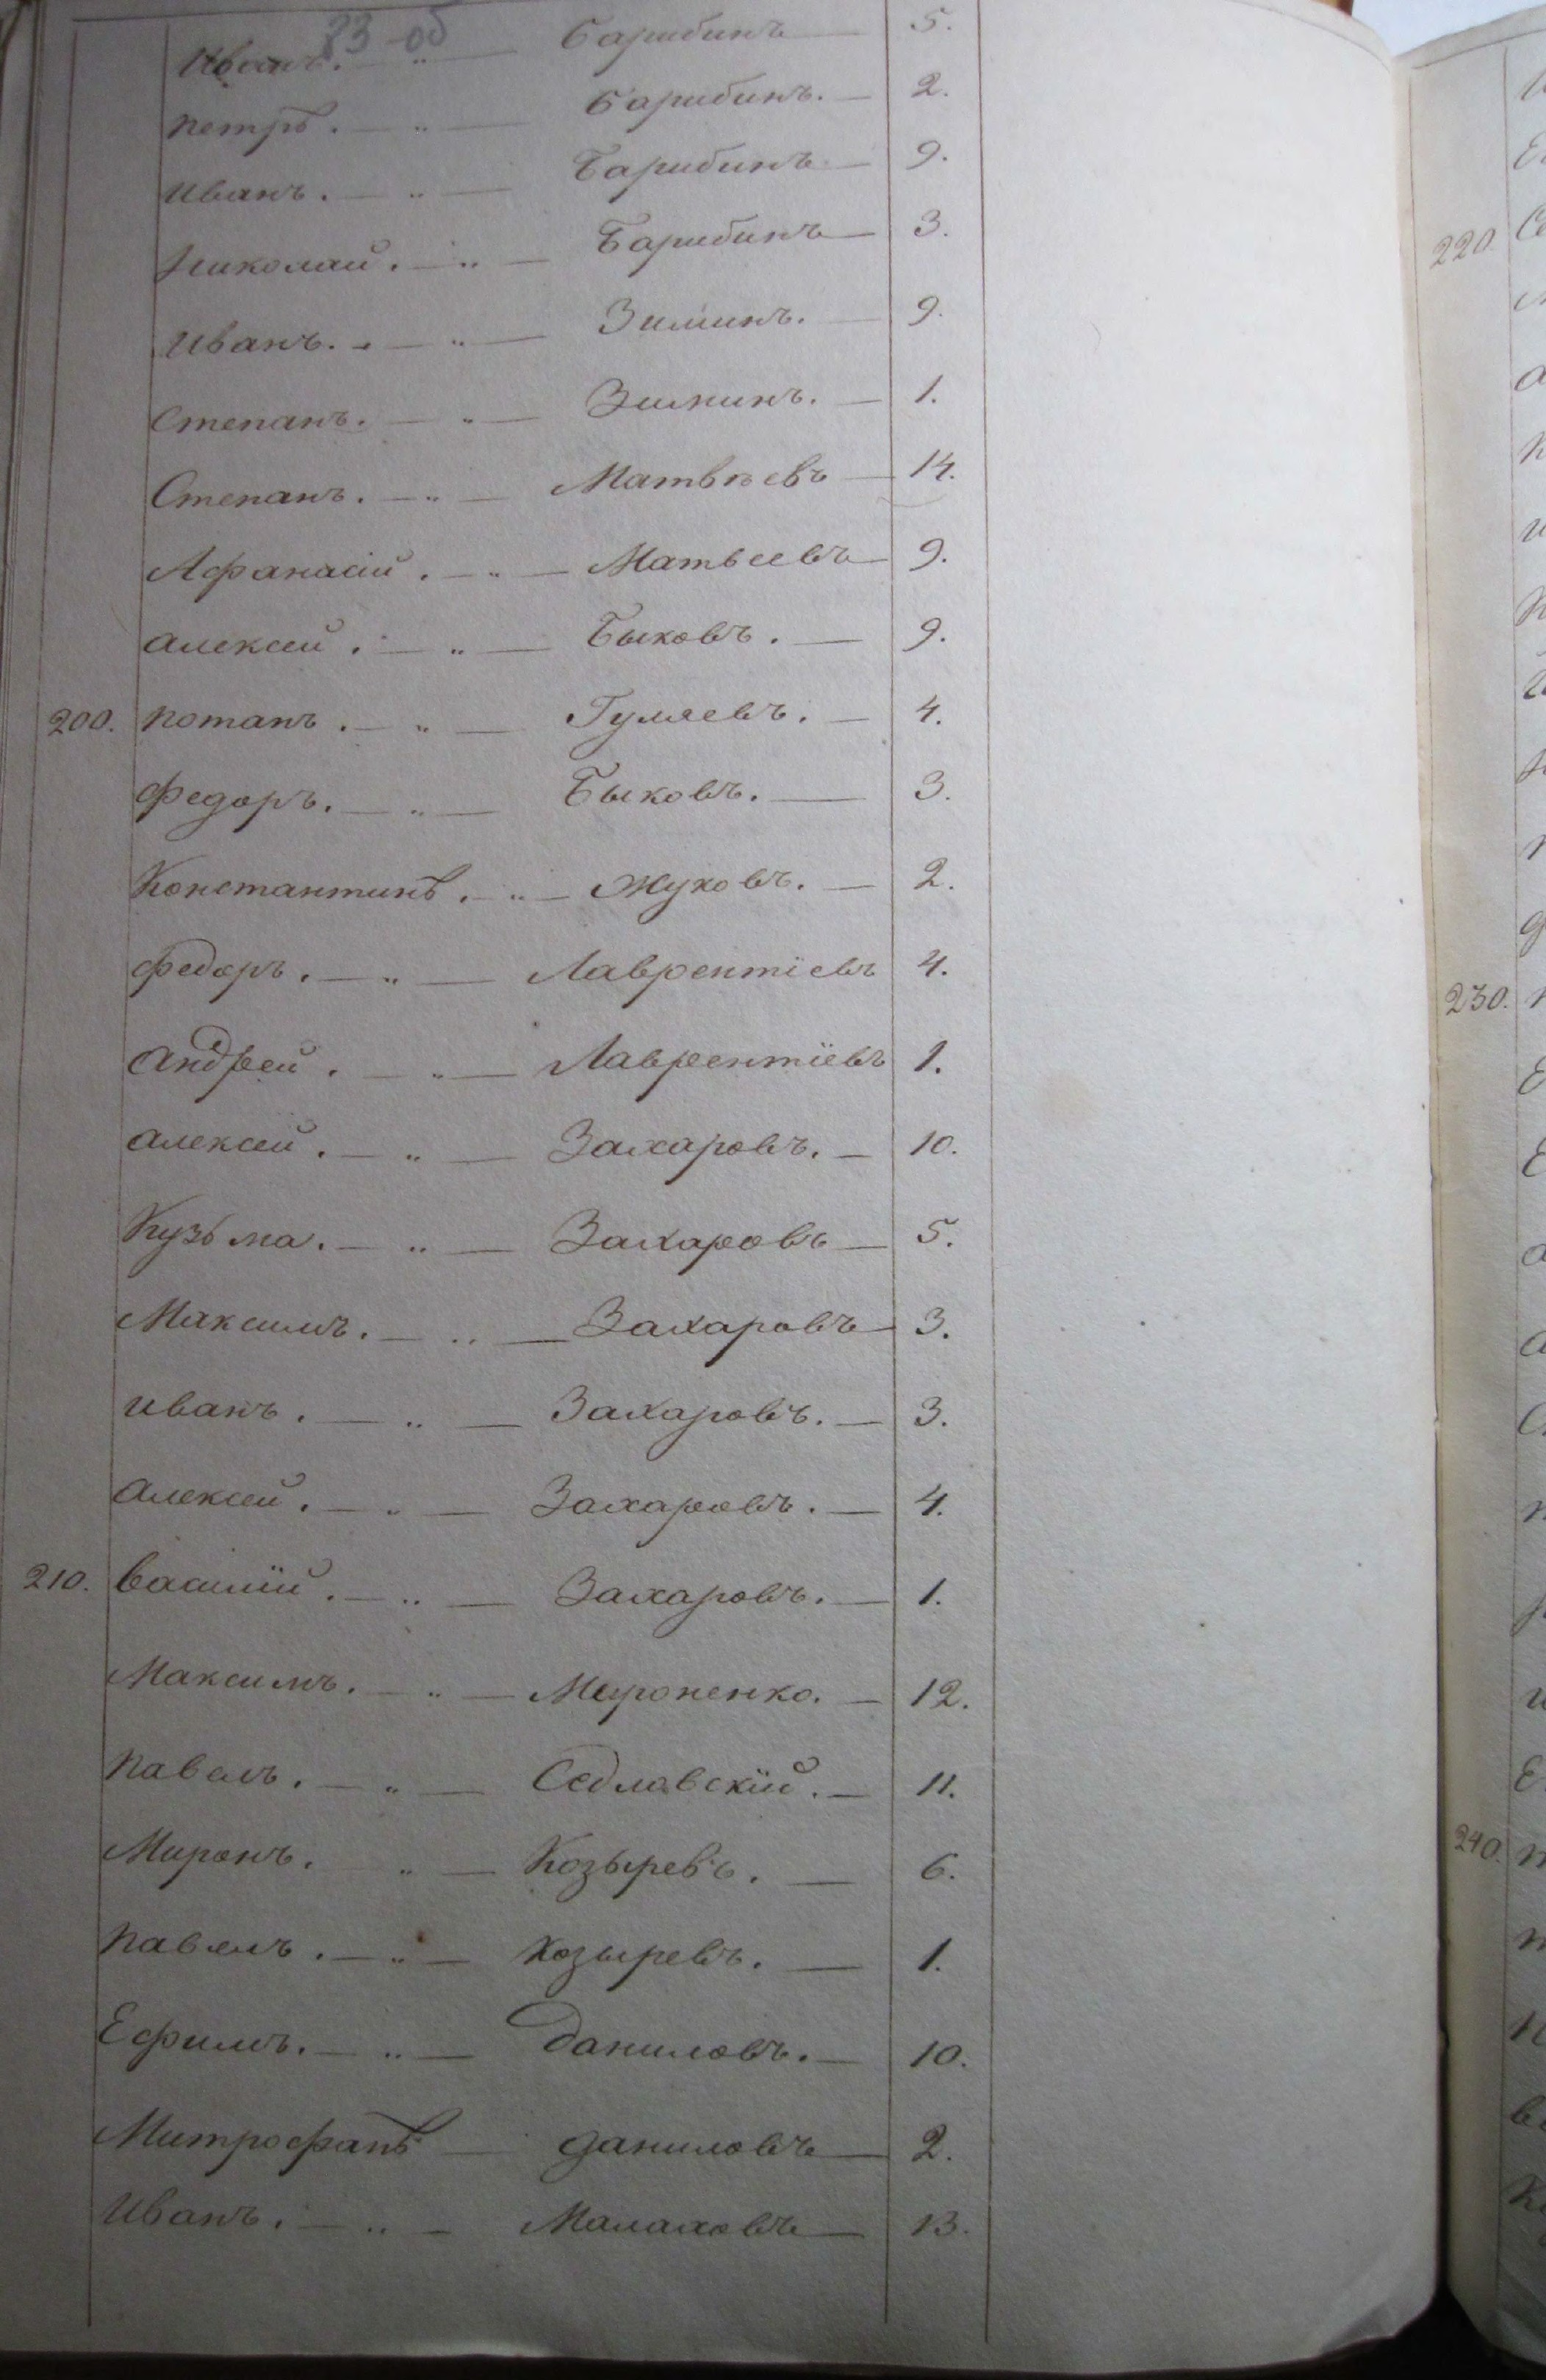 83 об
Иванъ. — " — Барибинъ — 5.
Петръ. — " — Барибинъ. — 2.
Иванъ. — " — Барибинъ — 9.
Николай. — " — Барибинъ — 3.
Иванъ. — " — Зиминъ. — 9.
Степанъ. — " — Зиминъ. — 1.
Степанъ. — " — Матвѣевъ — 14.
Афанасій. — " — Матвеевъ — 9.
Алексей. — " — Быковъ. — 9.
200. Потапъ. — " — Гуляевъ. — 4.
Федоръ. — " — Быковъ. — 3.
Константинъ. — " — Жуковъ. — 2.
Федоръ. — " — Лаврентіевъ 4.
Андрей. — " — Лаврентіевъ 1.
Алексей. — " — Захаровъ. — 10.
Кузьма. — " — Захаровъ — 5.
Максимъ. — " — Захаровъ — 3.
Иванъ. — " — Захаровъ. — 3.
Алексей. — " — Захаровъ. — 4.
210. Василій. — " — Захаровъ. — 1.
Максимъ. — " — Мироненко. — 12.
Павелъ. — " — Седлавскій. — 11.
Миронъ. " — Козыревъ. — 6.
Павелъ. — " — Козыревъ. — 1.
Ефимъ. — " — Даниловъ. — 10.
Митрофанъ — Даниловъ — 2.
Иванъ. — " — Малаховъ — 13.
220.
230.
240.